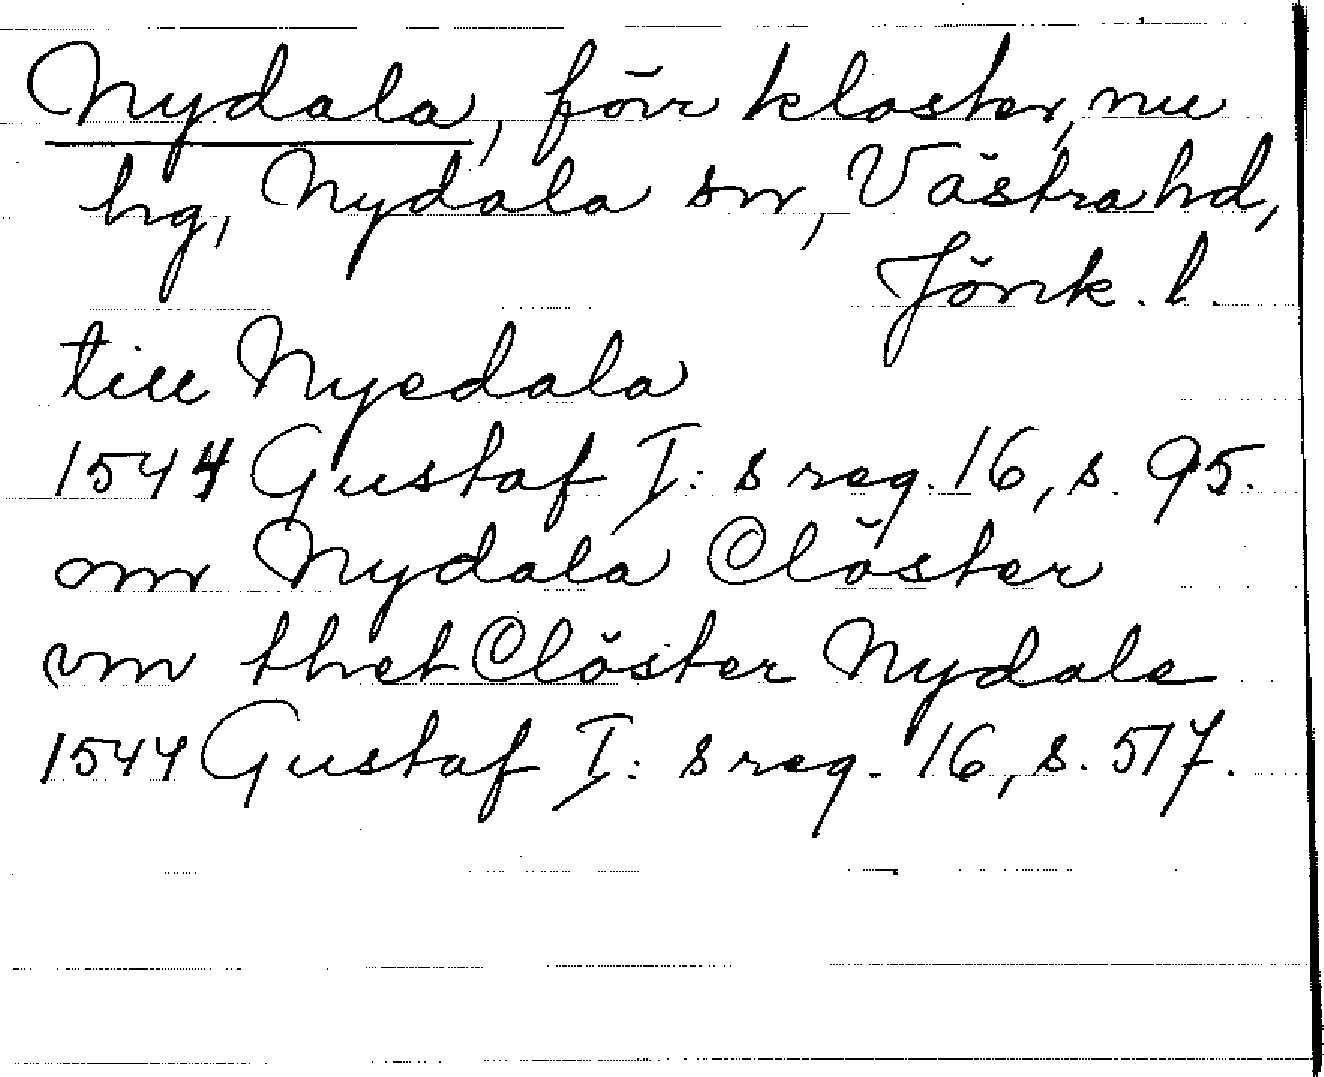 Nydala, förr kloster, nu
hg, Nydala sn, Västra hd,
Jönk. l.
till Nyedala
1544 Gustaf I:s reg. 16, s. 95.
om Nydala Clöster
vm thet Clöster Nydale
1544 Gustaf I:s reg. 16, s. 517.